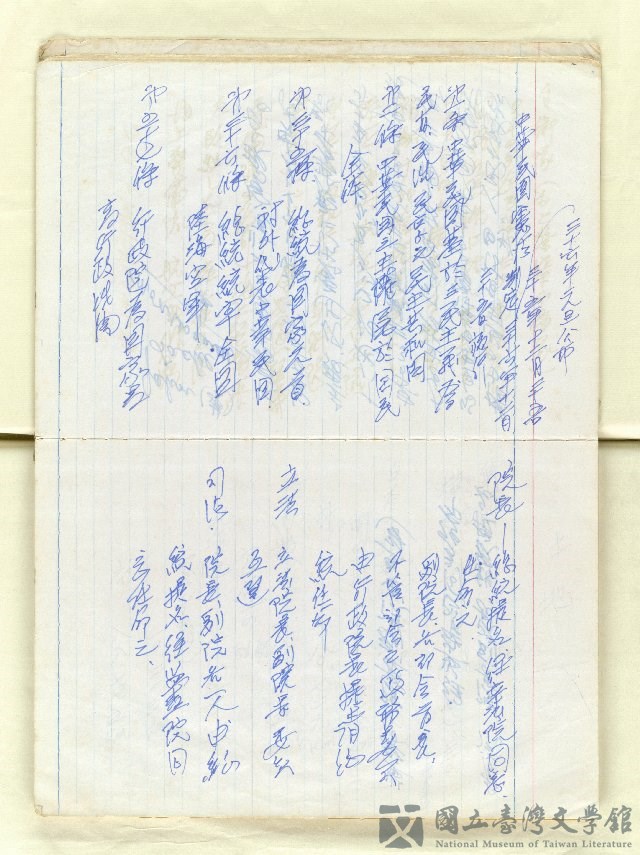 三十六年元旦公布
中華民國憲法 制定
第一條 中華民國基於三民主義為
民有民治民享之民主共和國
第二條 中華民國之主權屬於國民
全體
第三十五條 總統為國家元首,
對外代表中華民國
第三十六條 總統統率全國
陸海空軍
第五十三條 行政院為國家最
高行政機關
院長-總統提名,立法院同意,
副院長,各部會首長,
不管部會之政務委員,
由行政院長提請總
統任命
立法
立法院長,副院長委員
互選
司法.
院長,副院長各一人由總
統提名,經監察院同
意任命之.
國立臺灣文學館
National Museum of Taiwan Literature